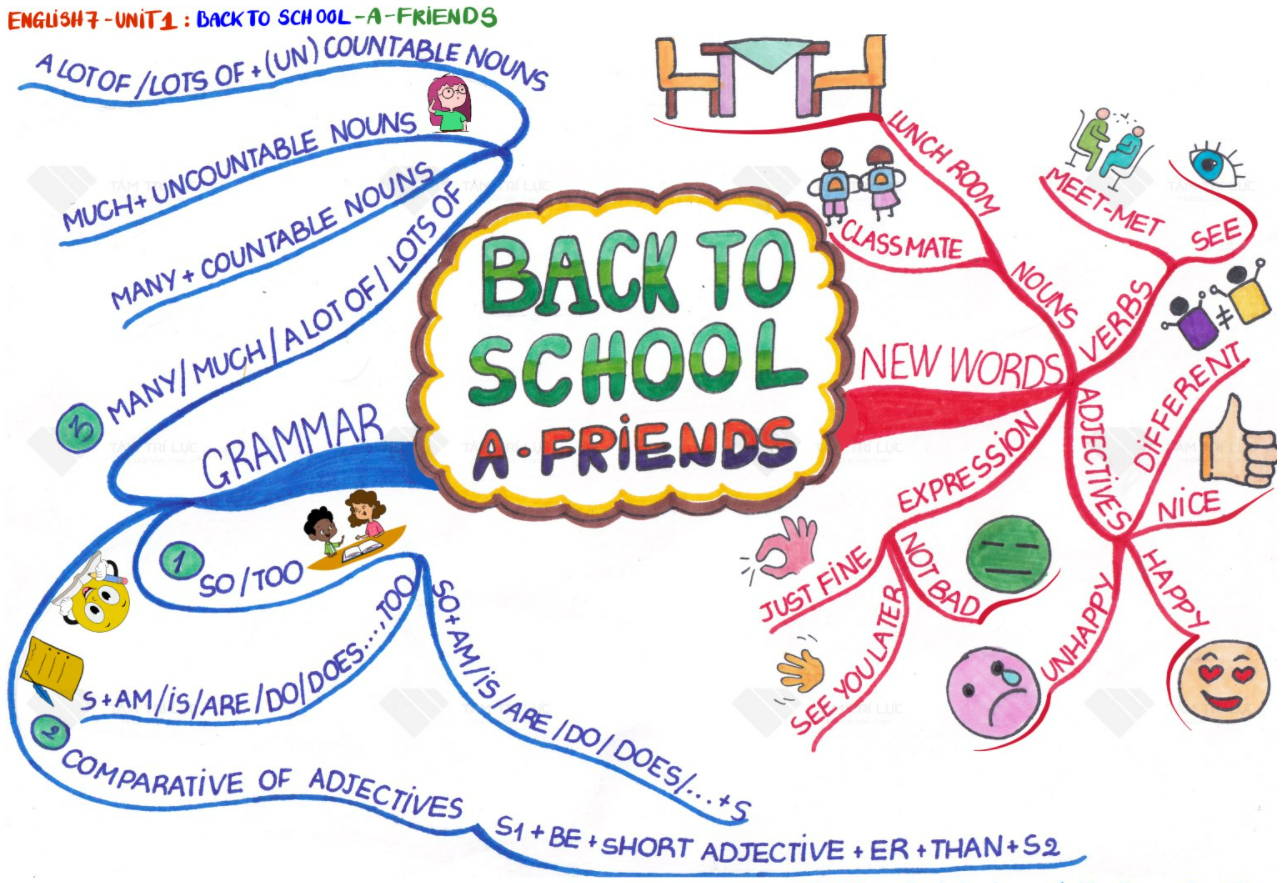 ENGLISH 7 - UNIT 1 : BACK TO SCHOOL - A - FRIENDS
BACK TO
SCHOOL
A - FRIENDS
GRAMMAR
1
SO / TOO
S + AM / IS / ARE / DO / DOES...., TOO
SO + AM / IS / ARE / DO / DOES / ... + S
2
COMPARATIVE OF ADJECTIVES
S1 + BE + SHORT ADJECTIVE + ER + THAN + S2
3
MANY / MUCH / A LOT OF / LOTS OF
A LOT OF / LOTS OF + (UN) COUNTABLE NOUNS
MUCH + UNCOUNTABLE NOUNS
MANY + COUNTABLE NOUNS
NEW WORDS
NOUNS
LUNCH ROOM
CLASSMATE
VERBS
MEET - MET
SEE
≠
ADJECTIVES
DIFFERENT
NICE
HAPPY
UNHAPPY
EXPRESSION
NOT BAD
JUST FINE
SEE YOU LATER
TÂM TRÍ LỰC